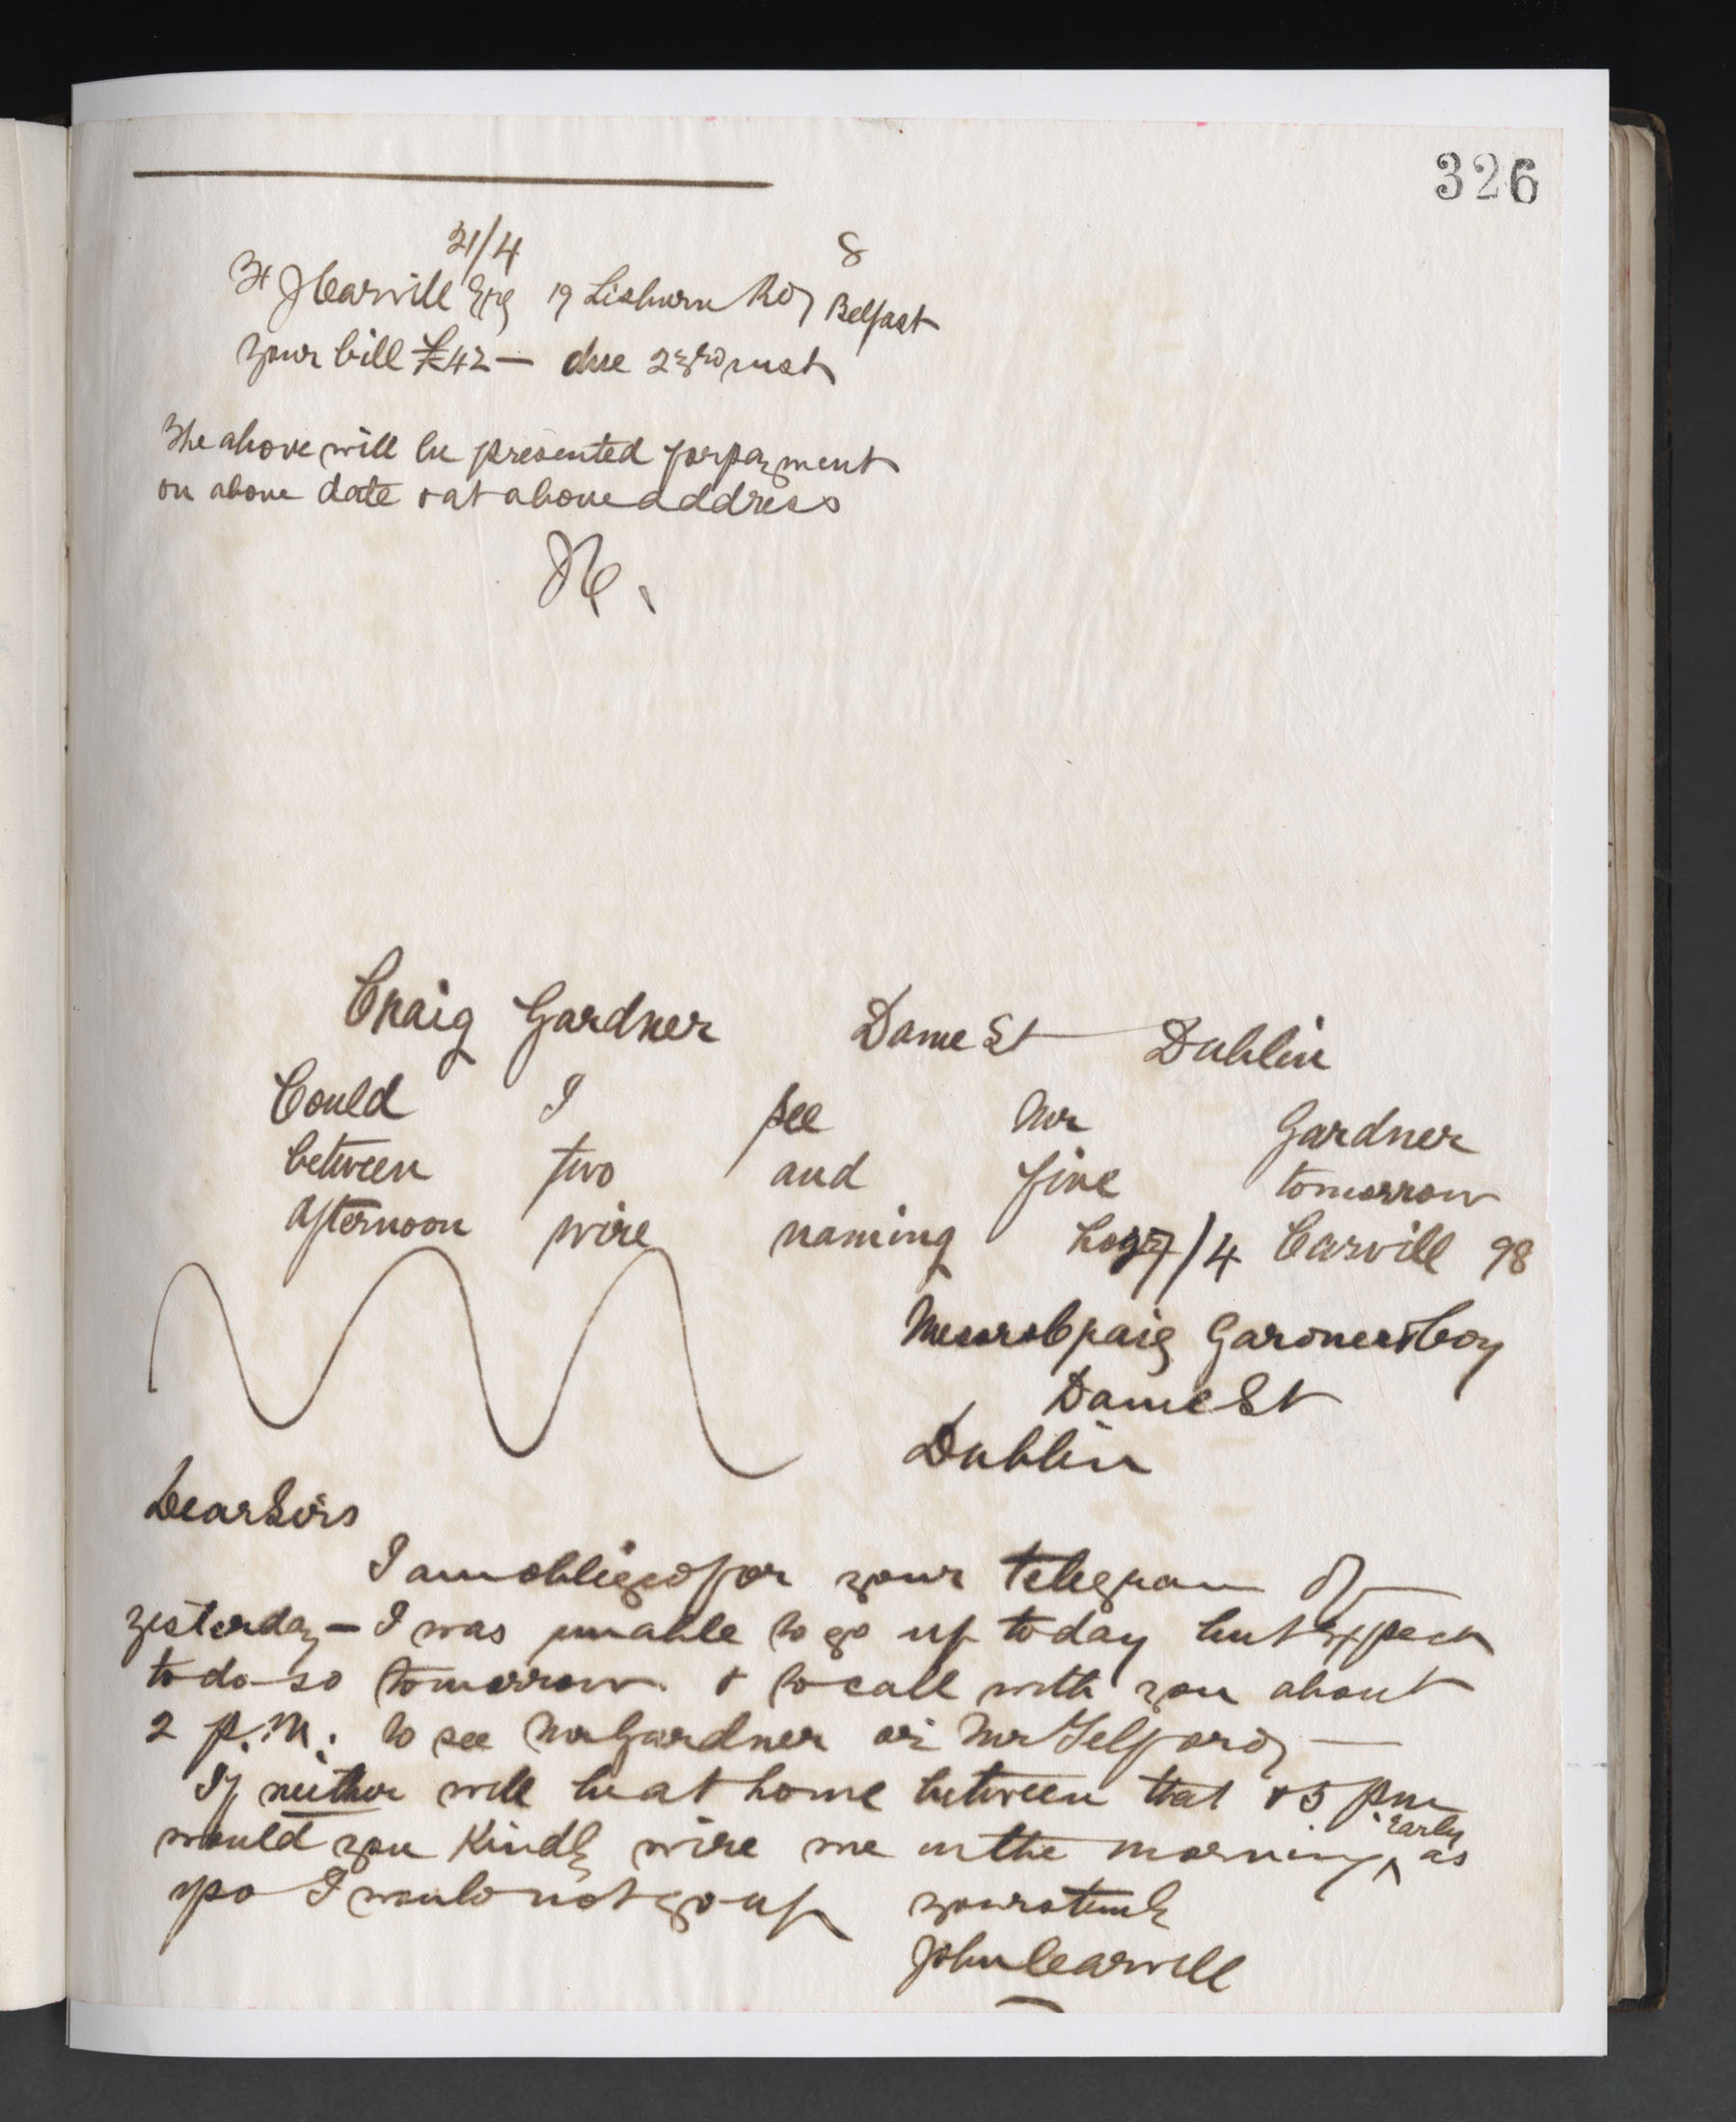 326
21/4 8
J Carvill Esq 19 Lisburn Rd, Belfast
your bill £42 — due 23rd inst
The above will be presented for payment
on above date & at above address
JC.
Craig Gardner Dame St Dublin
Could I see Mr Gardner
between two and five tomorrow
afternoon wire naming 27/4 Carvill 98
Messrs Craig Gardner & Coy
Dame St
Dublin
Dear Sirs
I am obliged for your telegram of
yesterday — I was unable to go up today but expect
to do so tomorrow & to call with you about
2 p.m. to see Mr Gardner or Mr Telford, —
If neither will be at home between that & 5 pm
would you kindly wire me in the morning ^ early as
if so I would not go up yours truly
John Carvill